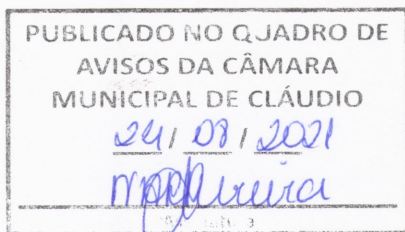 PUBLICADO NO QUADRO DE
AVISOS DA CÂMARA
MUNICIPAL DE CLÁUDIO
24/ 08 / 2021